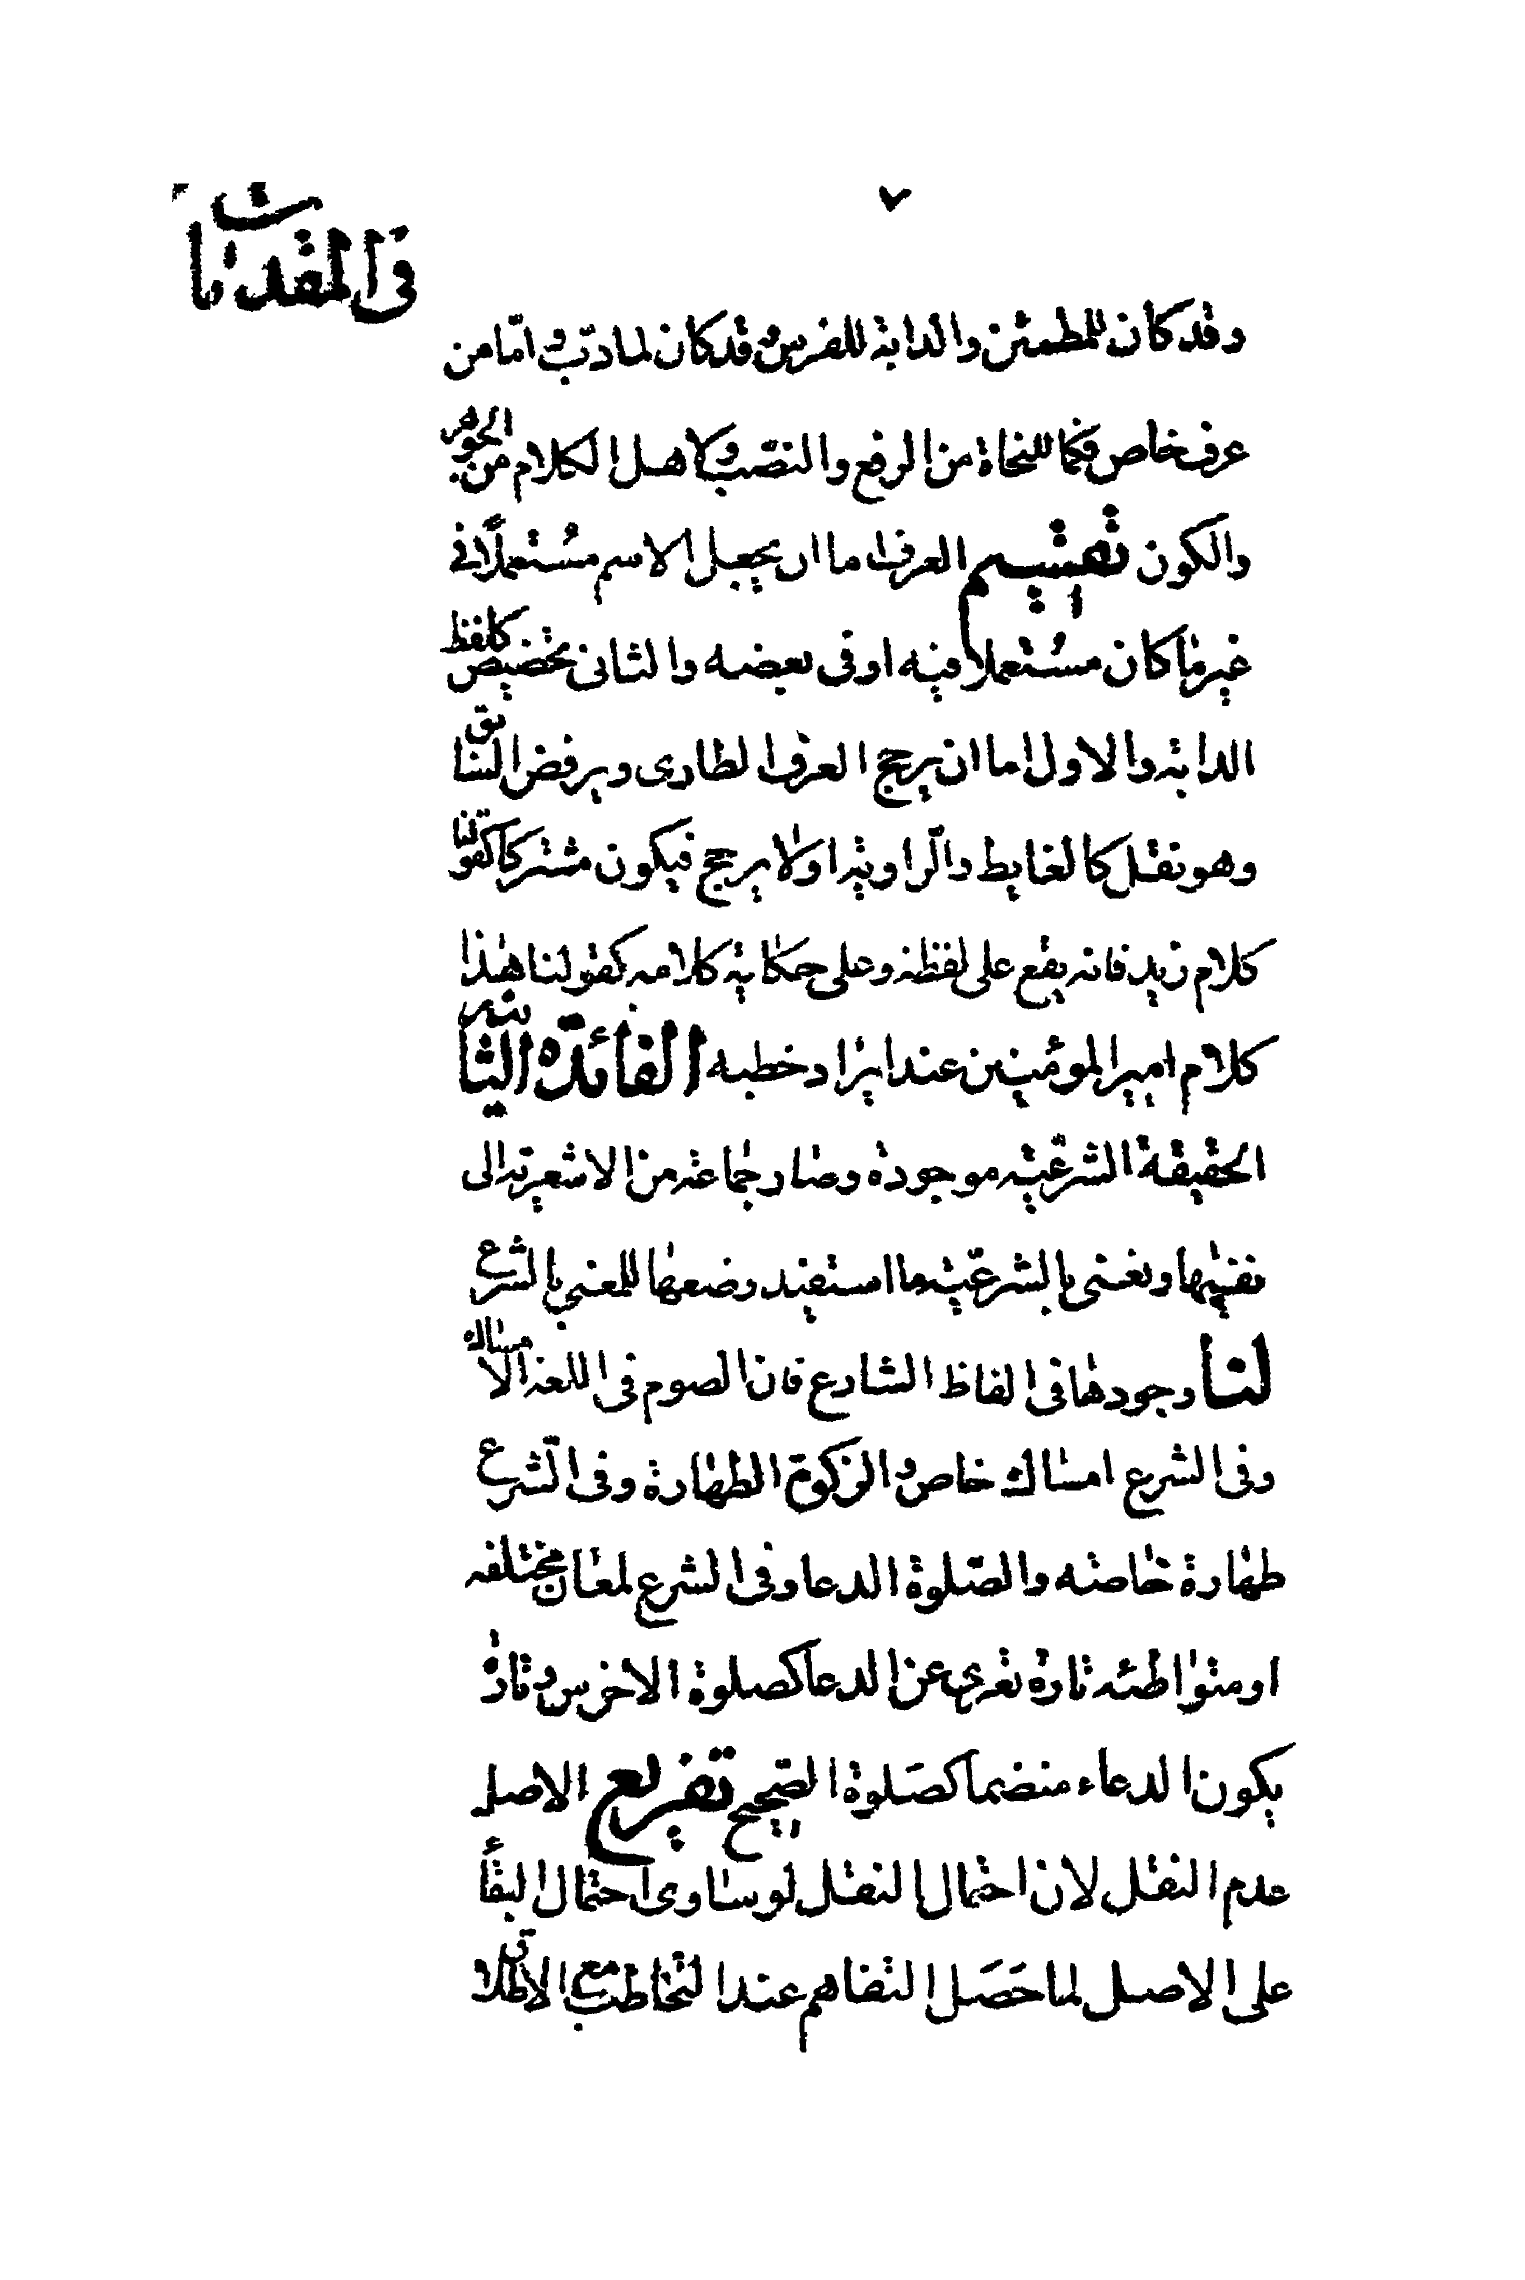 ٧
في المقدمات
وقد كان للمطمئن والدابة للفرس وقد كان لما دب وامّا من
عرف خاص فكما للنحاة من الرفع والنصب وكلاهل الكلام من الجوهر
والكون تقسيم العرف اما ان يجعل الاسم مستعملاً في
غير ما كان مستعملا فيه او في بعضه والثاني تخصيص كلفظ
الدابة والاول اما ان يرجح العرف الطاري ويرفض السابق
وهو نقل كالغايط والراوية اولا يرجح فيكون مشتركا كقولنا
كلام زيد فانه يقع على لفظه وعلى حكاية كلامه كقولنا هذا
كلام امير المومنين عند ايراد خطبه الفائدة الثانية
الحقيقة الشرعّية موجودة وصار جماعة من الاشعرية الى
نفيها ونعنى بالشرعّية ما استفيد وضعها للمعنى بالشرع
لنا وجودها في الفاظ الشارع فان الصوم في اللغة الامساك
وفي الشرع امساك خاص والزكوة الطهارة وفي الشرع
طهارة خاصة والصّلوة الدعا وفي الشرع لمعان مختلفه
او متواطئه تارة تعرى عن الدعا كصلوة الاخرس وتارة
يكون الدعاء منضما كصَلوة الصحيح تفريع الاصل
عدم النقل لان احتمال النقل لو ساوى احتمال البقأ
على الاصل لما حَصَل التفاهم عند التخاطب مع الاطلاق